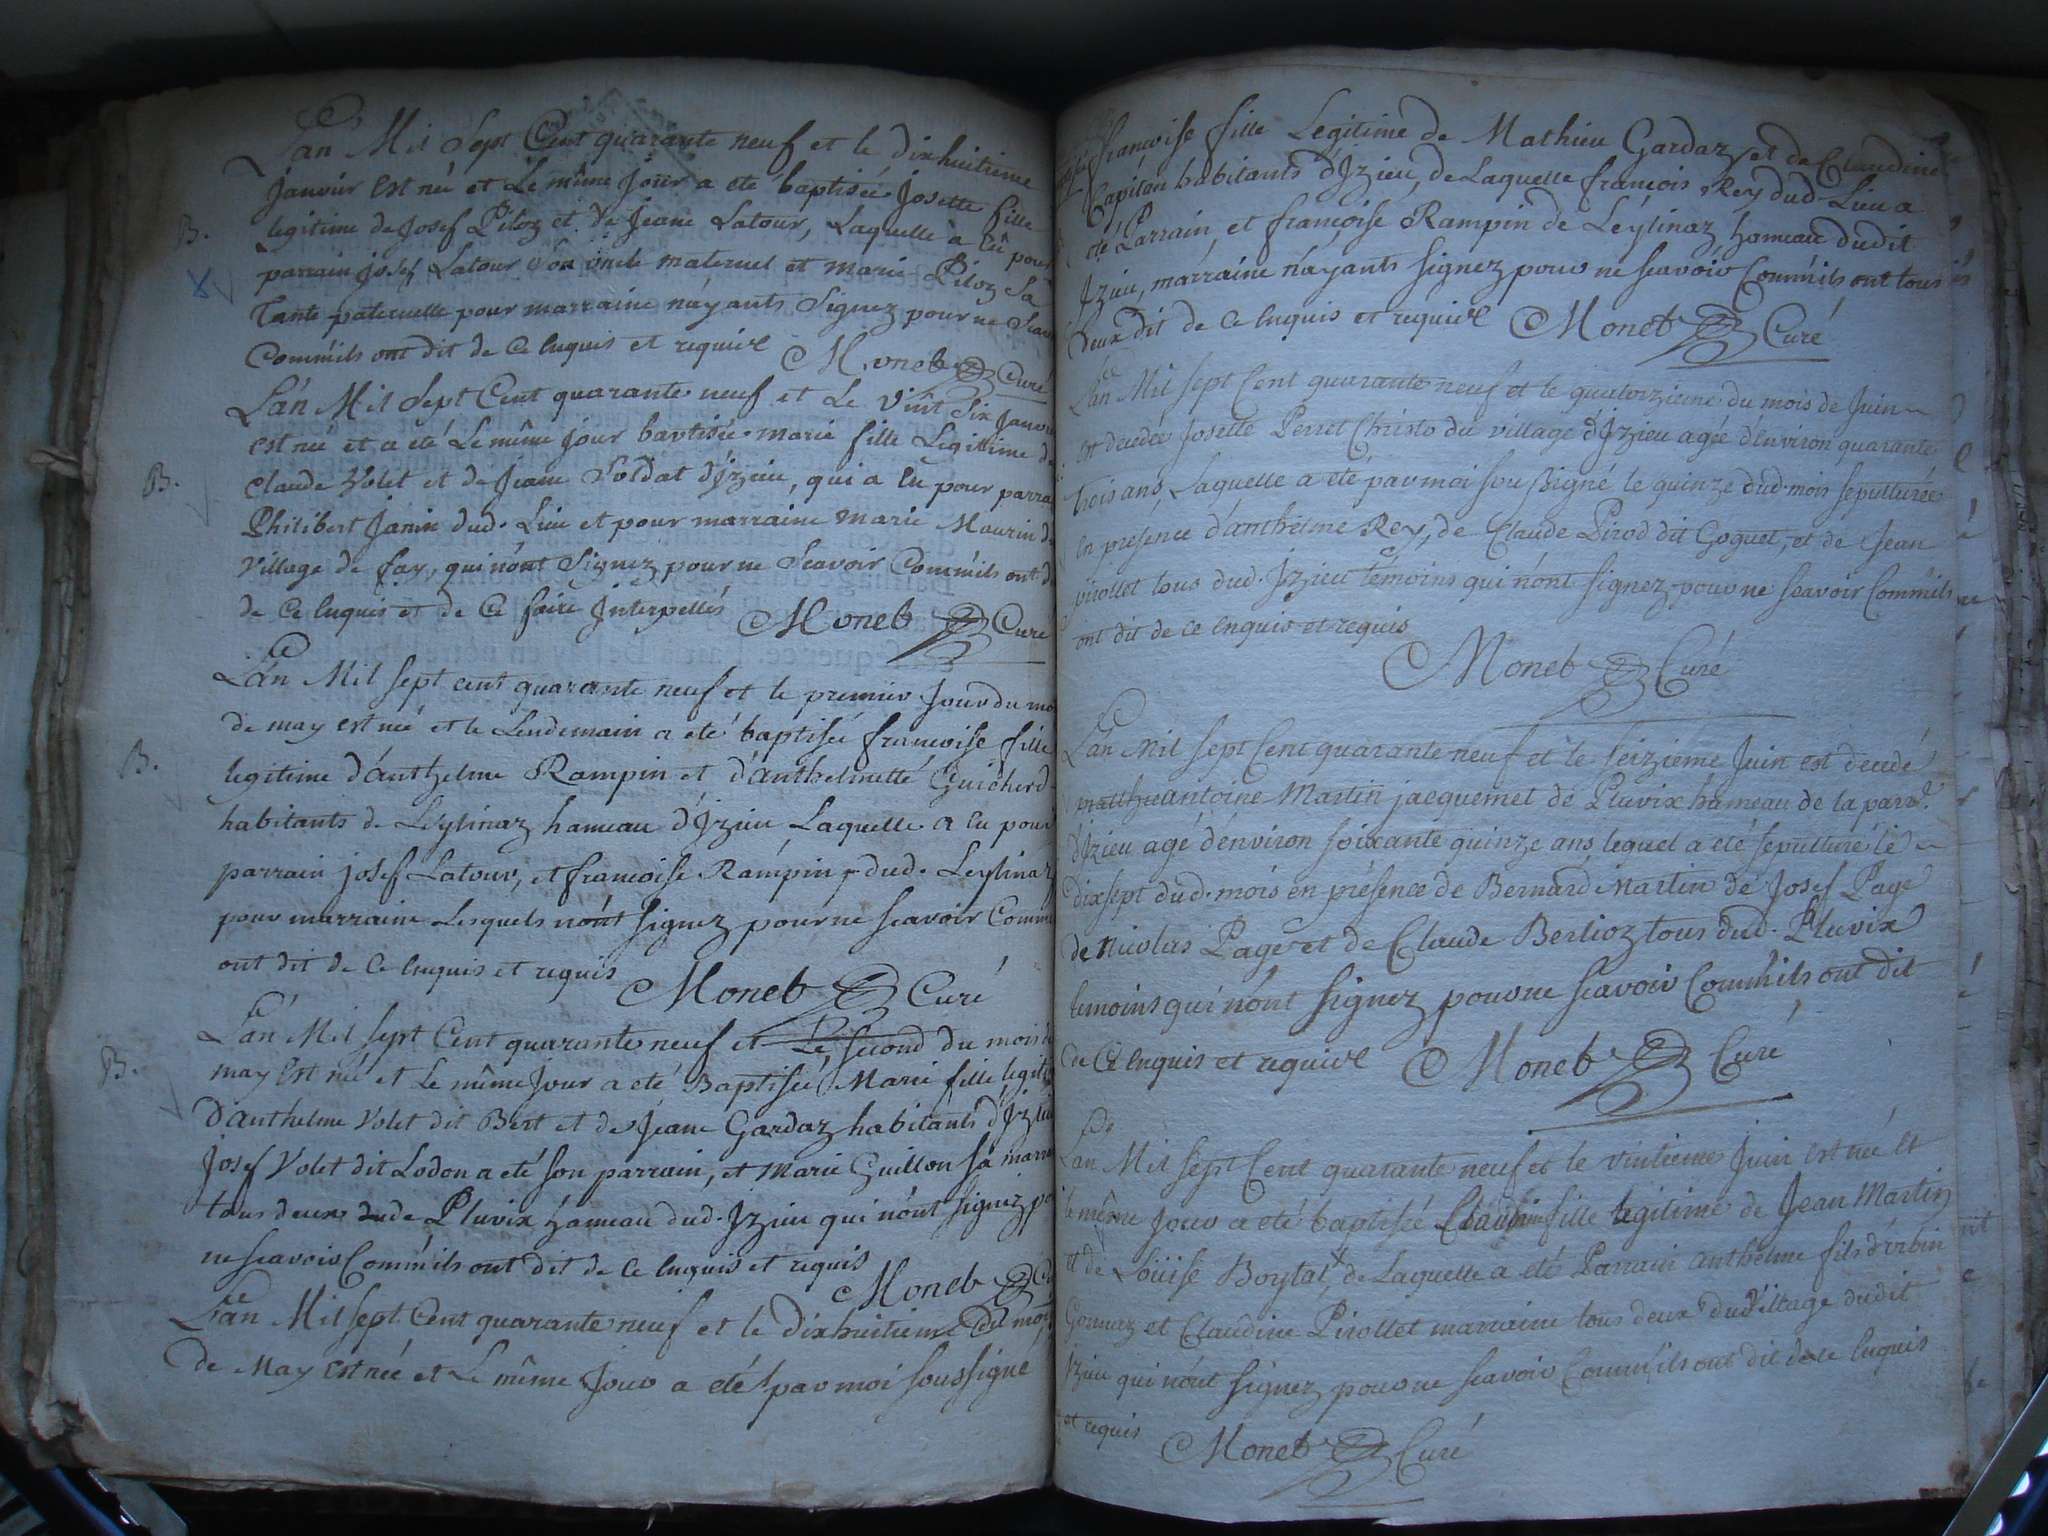 L'an Mil Sept Cent quarante neuf et le dixhuitieme
Janvier est née et Le même Jour a eté baptisée Josette fille
legitime de Josef Piloz et de Jeane Latour, Laquelle a eû pour
B.
parrain Josef Latour son oncle maternel et marie Piloz Sa
Tante paternelle pour marraine n'ayants Signez pour ne Scav
Comm'ils ont dit de ce Enquis et require Monet Curé
L'an Mil Sept Cent quarante neuf et Le Vint Six Janvi
est née et a été Le même jour baptisée marie fille Legitime de
B.
Claude Volet et de Jeane Soldat d'Jzieu, qui a Eu pour parra
Philibert Janin dud. Lieu et pour marraine marie Maurin d
Village de fay, qui n'ont Signez pour ne Scavoir Comm'ils ont d
de Ce Enquis et de Ce faire Jnterpellés Monet Curé
L'an Mil sept cent quarante neuf et le premier Jour du mo
de may est née et le Lendemain a eté baptisée francoise fille
B.
legitime d'anthelme Rampin et d'anthelmette Guicherd
habitants de Leylinaz hameau d'Jzieu Laquelle a Eu pour
parrain josef Latour, et francoise Rampin dud. Leylinaz
pour marraine Lesquels n'ont signez pour ne scavoir Comm
ont dit de Ce Enquis et requis Monet Curé
L'an Mil sept Cent quarante neuf et Le second du mois d
B.
may Est née et Le même Jour a eté Baptisée Marie fille legiti
d'anthelme Volet dit Bert et de Jeane Gardaz habitants d'Jzieu
Josef Volet dit Lodon a eté son parrain, et marie Guillon sa marra
tous deux de Pluvix hameau dud. Jzieu qui n'ont signez po
ne scavoir Comm'ils ont dit de Ce Enquis et requis
Monet Cu
L'an Mil sept Cent quarante neuf et le dixhuitieme du mois
de May est née et Le même Jour a eté par moi soussigné
francoise fille Legitime de Mathieu Gardaz et de Claudine
Capitan habitants d'Jzieu, de Laquelle francois Rey dud. Lieu a
eté Parrain, et francoise Rampin de Leylinaz hameau dudit
Jzieu, marraine n'ayants signez pour ne scavoir Comm'ils ont tous
deux dit de Ce Enquis et require Monet Curé
L'an Mil sept Cent quarante neuf et le quatorzieme du mois de Juin
est decedée Josette Perret Christo du village d'Jzieu agée d'Environ quarante
trois ans, Laquelle a eté par moi sousigné le quinze dud. mois sepulturée
En presence d'anthelme Rey, de Claude Pirod dit Goguet, et de Jean
pirollet tous dud. Jzieu temoins qui n'ont signez pour ne scavoir Comm'ils
ont dit de Ce Enquis et requis
Monet Curé
L'an Mil sept Cent quarante neuf et le seizieme Juin est decedé
antoine Martin jacquemet de Pluvix hameau de la parr.
d'Jzieu agé d'environ soixante quinze ans lequel a eté sepulturé le
dixsept dud. mois en présence de Bernard Martin de Josef Page
de Nicolas Page et de Claude Berlioz tous dud. Pluvix
temoins qui n'ont signez pour ne scavoir Comm'ils ont dit
de Ce Enquis et require Monet Curé
L'an Mil sept Cent quarante neuf et le vintieme Juin est née et
le même Jour a eté baptisée Claudine fille legitime de Jean Martin
et de Loüise Boytat, de Laquelle a eté Parrain anthelme fils d'urbin
Gonnaz et Claudine Pirollet marraine tous deux du Village dudit
Jzieu qui n'ont signez pour ne scavoir Comm'ils ont dit de Ce Enquis
et requis Monet Curé